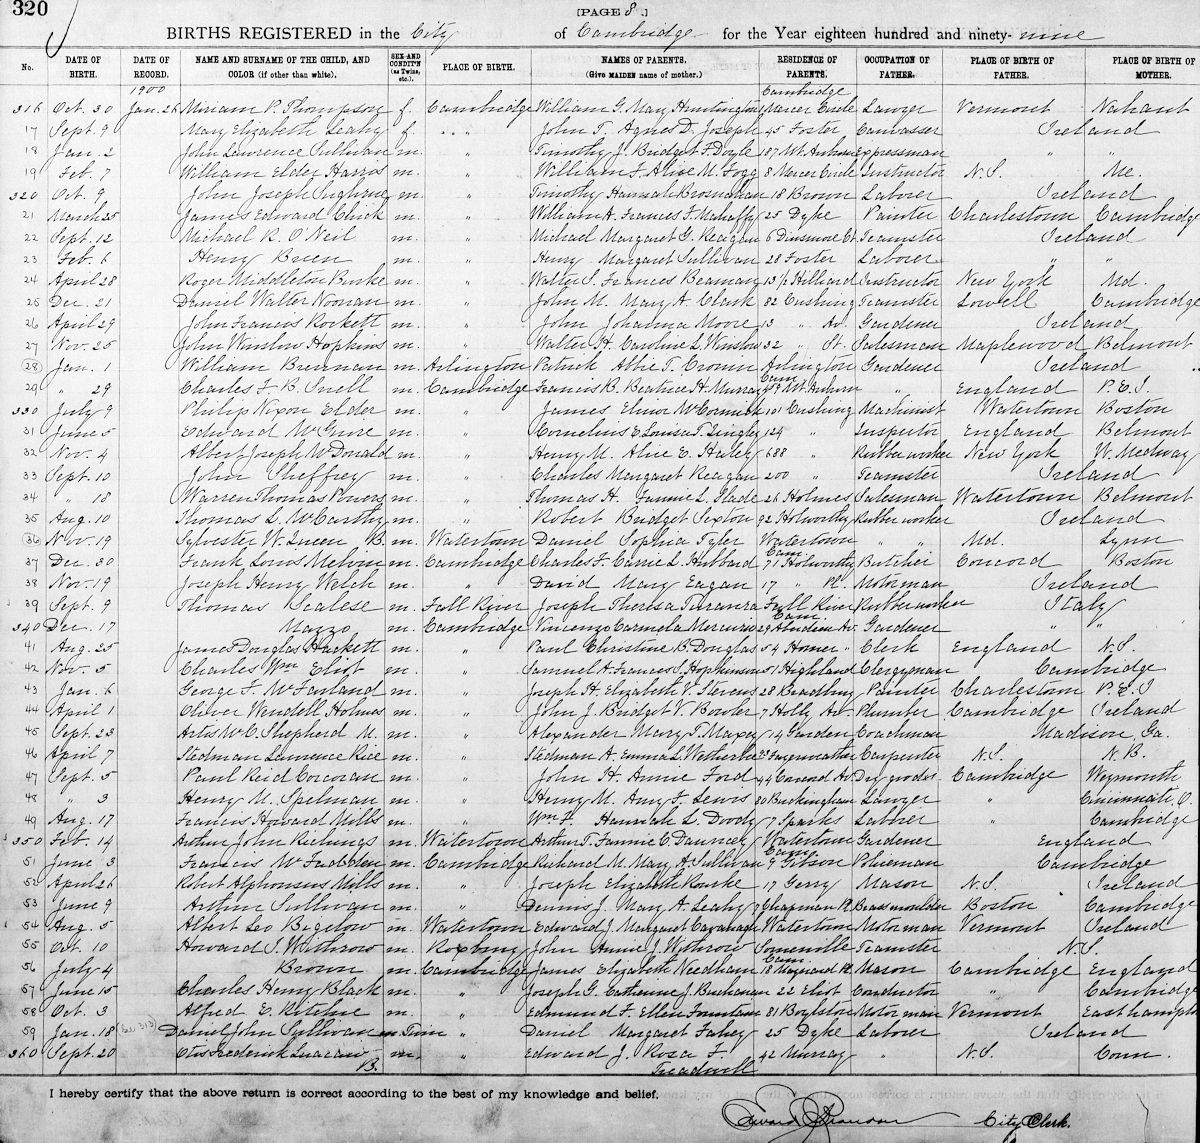 320
[PAGE 8.]
BIRTHS REGISTERED in the City of Cambridge for the Year eighteen hundred and ninety-nine
No. DATE OF BIRTH. DATE OF RECORD. NAME AND SURNAME OF THE CHILD, AND COLOR (if other than white). SEX AND CONDIT'N (as Twins, etc.). PLACE OF BIRTH. NAMES OF PARENTS. (Give MAIDEN name of mother.) RESIDENCE OF PARENTS. OCCUPATION OF FATHER. PLACE OF BIRTH OF FATHER. PLACE OF BIRTH OF MOTHER.
1900 Cambridge
316 Oct. 30 Jan. 26 Miriam P. Thompson f. Cambridge William G. Mary Huntington Mercer Circle Lawyer Vermont Nahant
17 Sept. 9 Mary Elizabeth Leahy f. " John T. Agnes D. Joseph 45 Foster Canvasser Ireland
18 Jan. 2 John Lawrence Sullivan m. " Timothy J. Bridget F. Doyle 187 Mt. Auburn Expressman " "
19 Feb. 7 William Elder Harris m. " William F. Alice M. Fogg 8 Mercer Circle Instructor N.S. Me.
320 Oct. 9 John Joseph m. " Timothy Hannah Brosnahan 18 Brown Laborer Ireland
21 March 25 James Edward Chick m. " William A. Frances F. Mahaffy 25 Dyke Painter Charlestown Cambridge
22 Sept. 12 Michael R. O'Neil m. " Michael Margaret G. Reagan 6 Dinsmore Ct. Teamster Ireland
23 Feb. 6 Henry m. " Henry Margaret Sullivan 28 Foster Laborer " "
24 April 28 Roger Middleton Burke m. " Walter S. Frances Beaman 13½ Hilliard Instructor New York Md.
25 Dec. 21 Daniel Walter Noonan m. " John M. Mary A. Clark 82 Cushing Teamster Lowell Cambridge
26 April 29 John Francis Rockett m. " John Johanna Moore 13 " Av. Gardener Ireland
27 Nov. 25 John Winslow Hopkins m. " Walter H. Caroline L. Winslow 32 " St. Salesman Maplewood Belmont
28 Jan. 1 William Brennan m. Arlington Patrick Abbie T. Cronin Arlington Gardener Ireland
29 " 29 Charles F. B. Snell m. Cambridge Francis B. Beatrice H. Murray Cam. Mt. Auburn " England P.E.I.
330 July 9 Philip Nixon Elder m. " James Elinor McCormick 101 Cushing Machinist Watertown Boston
31 June 5 Edward McGuire m. " Cornelius E. Louisa T. Tingley 124 " Inspector England Belmont
32 Nov. 4 Albert Joseph McDonald m. " Henry M. Alice E. Haley 688 " Rubber worker New York W. Medway
33 Sept. 10 John Sheffrey m. " Charles Margaret Reagan 200 " Teamster Ireland
34 " 18 Warren Thomas Powers m. " Thomas H. Fannie L. Slade 26 Holmes Salesman Watertown Belmont
35 Aug. 10 Thomas L. McCarthy m. " Robert Bridget Sexton 92 Holworthy Rubber worker Ireland
36 Nov. 19 Sylvester W. Queen B. m. Watertown Daniel Sophia Tyler Watertown " " Md. Lynn
37 Dec. 30 Frank Louis Melvin m. Cambridge Charles F. Carrie L. Hubbard Cam. 71 Holworthy Butcher Concord Boston
38 Nov. 19 Joseph Henry Welch m. " David Mary Eagan 17 " Pl. Motorman Ireland
39 Sept. 9 Thomas Scalese m. Fall River Joseph Theresa Fall River Rubber worker Italy
340 Dec. 17 Mazzo m. Cambridge Vincenzo Carmela Mercurio Cam. 29 Aberdeen Av. Gardener " "
41 Aug. 25 James Douglas Hackett m. " Paul Christine B. Douglas 54 Homer " Clerk England N.S.
42 Nov. 5 Charles Wm Eliot m. " Samuel A. Frances S. Hopkinson 51 Highland Clergyman Cambridge
43 Jan. 6 George F. McFarland m. " Joseph H. Elizabeth V. Stevens 28 Bradbury Painter Charlestown P.E.I
44 April 1 Oliver Wendell Holmes m. " John J. Bridget V. Bowler 7 Holly Av. Plumber Cambridge Ireland
45 Sept. 23 Artis McC. Shepherd M. m. " Alexander Mary T. Maxey 14 Garden Coachman Madison, Ga.
46 April 7 Stedman Laurence Rice m. " Stedman A. Emma L. Wetherbee 33 Fayerweather Carpenter N.S. N.B.
47 Sept. 5 Paul Reid Corcoran m. " John H. Annie Ford 44 Concord Av. Dry goods Cambridge Weymouth
48 " 3 Henry M. Spelman m. " Henry M. Amy F. Lewis 80 Buckingham Lawyer " Cincinnati, O.
49 Aug. 17 Francis Howard Mills m. " Wm F. Hannah L. Doody 7 Sparks Laborer " Cambridge
350 Feb. 14 Arthur John Richings m. Watertown Arthur T. Fannie C. Dauncey Watertown Gardener England
51 June 3 Francis m. Cambridge Richard M. Mary A. Sullivan Cam. 9 Gibson Policeman Cambridge
52 April 26 Robert Alphonsus Mills m. " Joseph Elizabeth Rourke 17 Gerry Mason N.S. Ireland
53 June 9 Arthur Sullivan m. " Dennis J. Mary A. Leahy 9 Chapman Pl. Brass moulder Boston Cambridge
54 Aug. 5 Albert Leo Bigelow m. Watertown Edward J. Margaret Cavanagh Watertown Motorman Vermont Ireland
55 Oct. 10 Howard S. Withrow m. Roxbury John Annie J. Withrow Somerville Teamster N.S.
56 July 4 Brown m. Cambridge James Elizabeth Needham Cam. 18 Maynard Pl. Mason Cambridge England
57 June 15 Charles Henry Black m. " Joseph G. Catherine J. Buchanan 22 Eliot Conductor " Cambridge
58 Oct. 3 Alfred E. Ritchie m. " Edmund F. Ellen Fountain 81 Boylston Motorman Vermont Easthampton
59 Jan. 18 (See 313) Daniel John Sullivan m Twin " Daniel Margaret Fahey 25 Dyke Laborer Ireland
360 Sept. 20 Otis Frederick B. m. " Edward J. Rosa F. Treadwell 42 Murray " N.S. Conn.
I hereby certify that the above return is correct according to the best of my knowledge and belief.
Edward J. Brandon City Clerk.